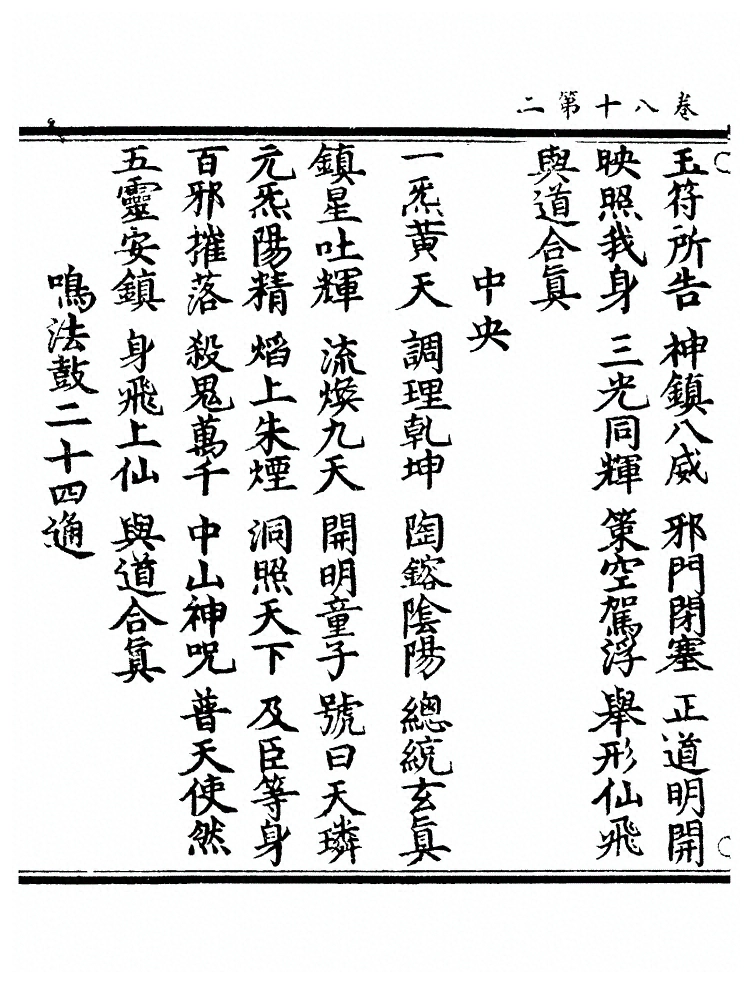 卷八十第二
玉符所告 神鎮八威 邪門閉塞 正道明開
映照我身 三光同輝 策空駕浮 舉形仙飛
與道合真
中央
一炁黃天 調理乾坤 陶鎔陰陽 總統玄真
鎮星吐輝 流煥九天 開明童子 號曰天璘
元炁陽精 焰上朱煙 洞照天下 及臣等身
百邪摧落 殺鬼萬千 中山神呪 普天使然
五靈安鎮 身飛上仙 與道合真
鳴法鼓二十四通